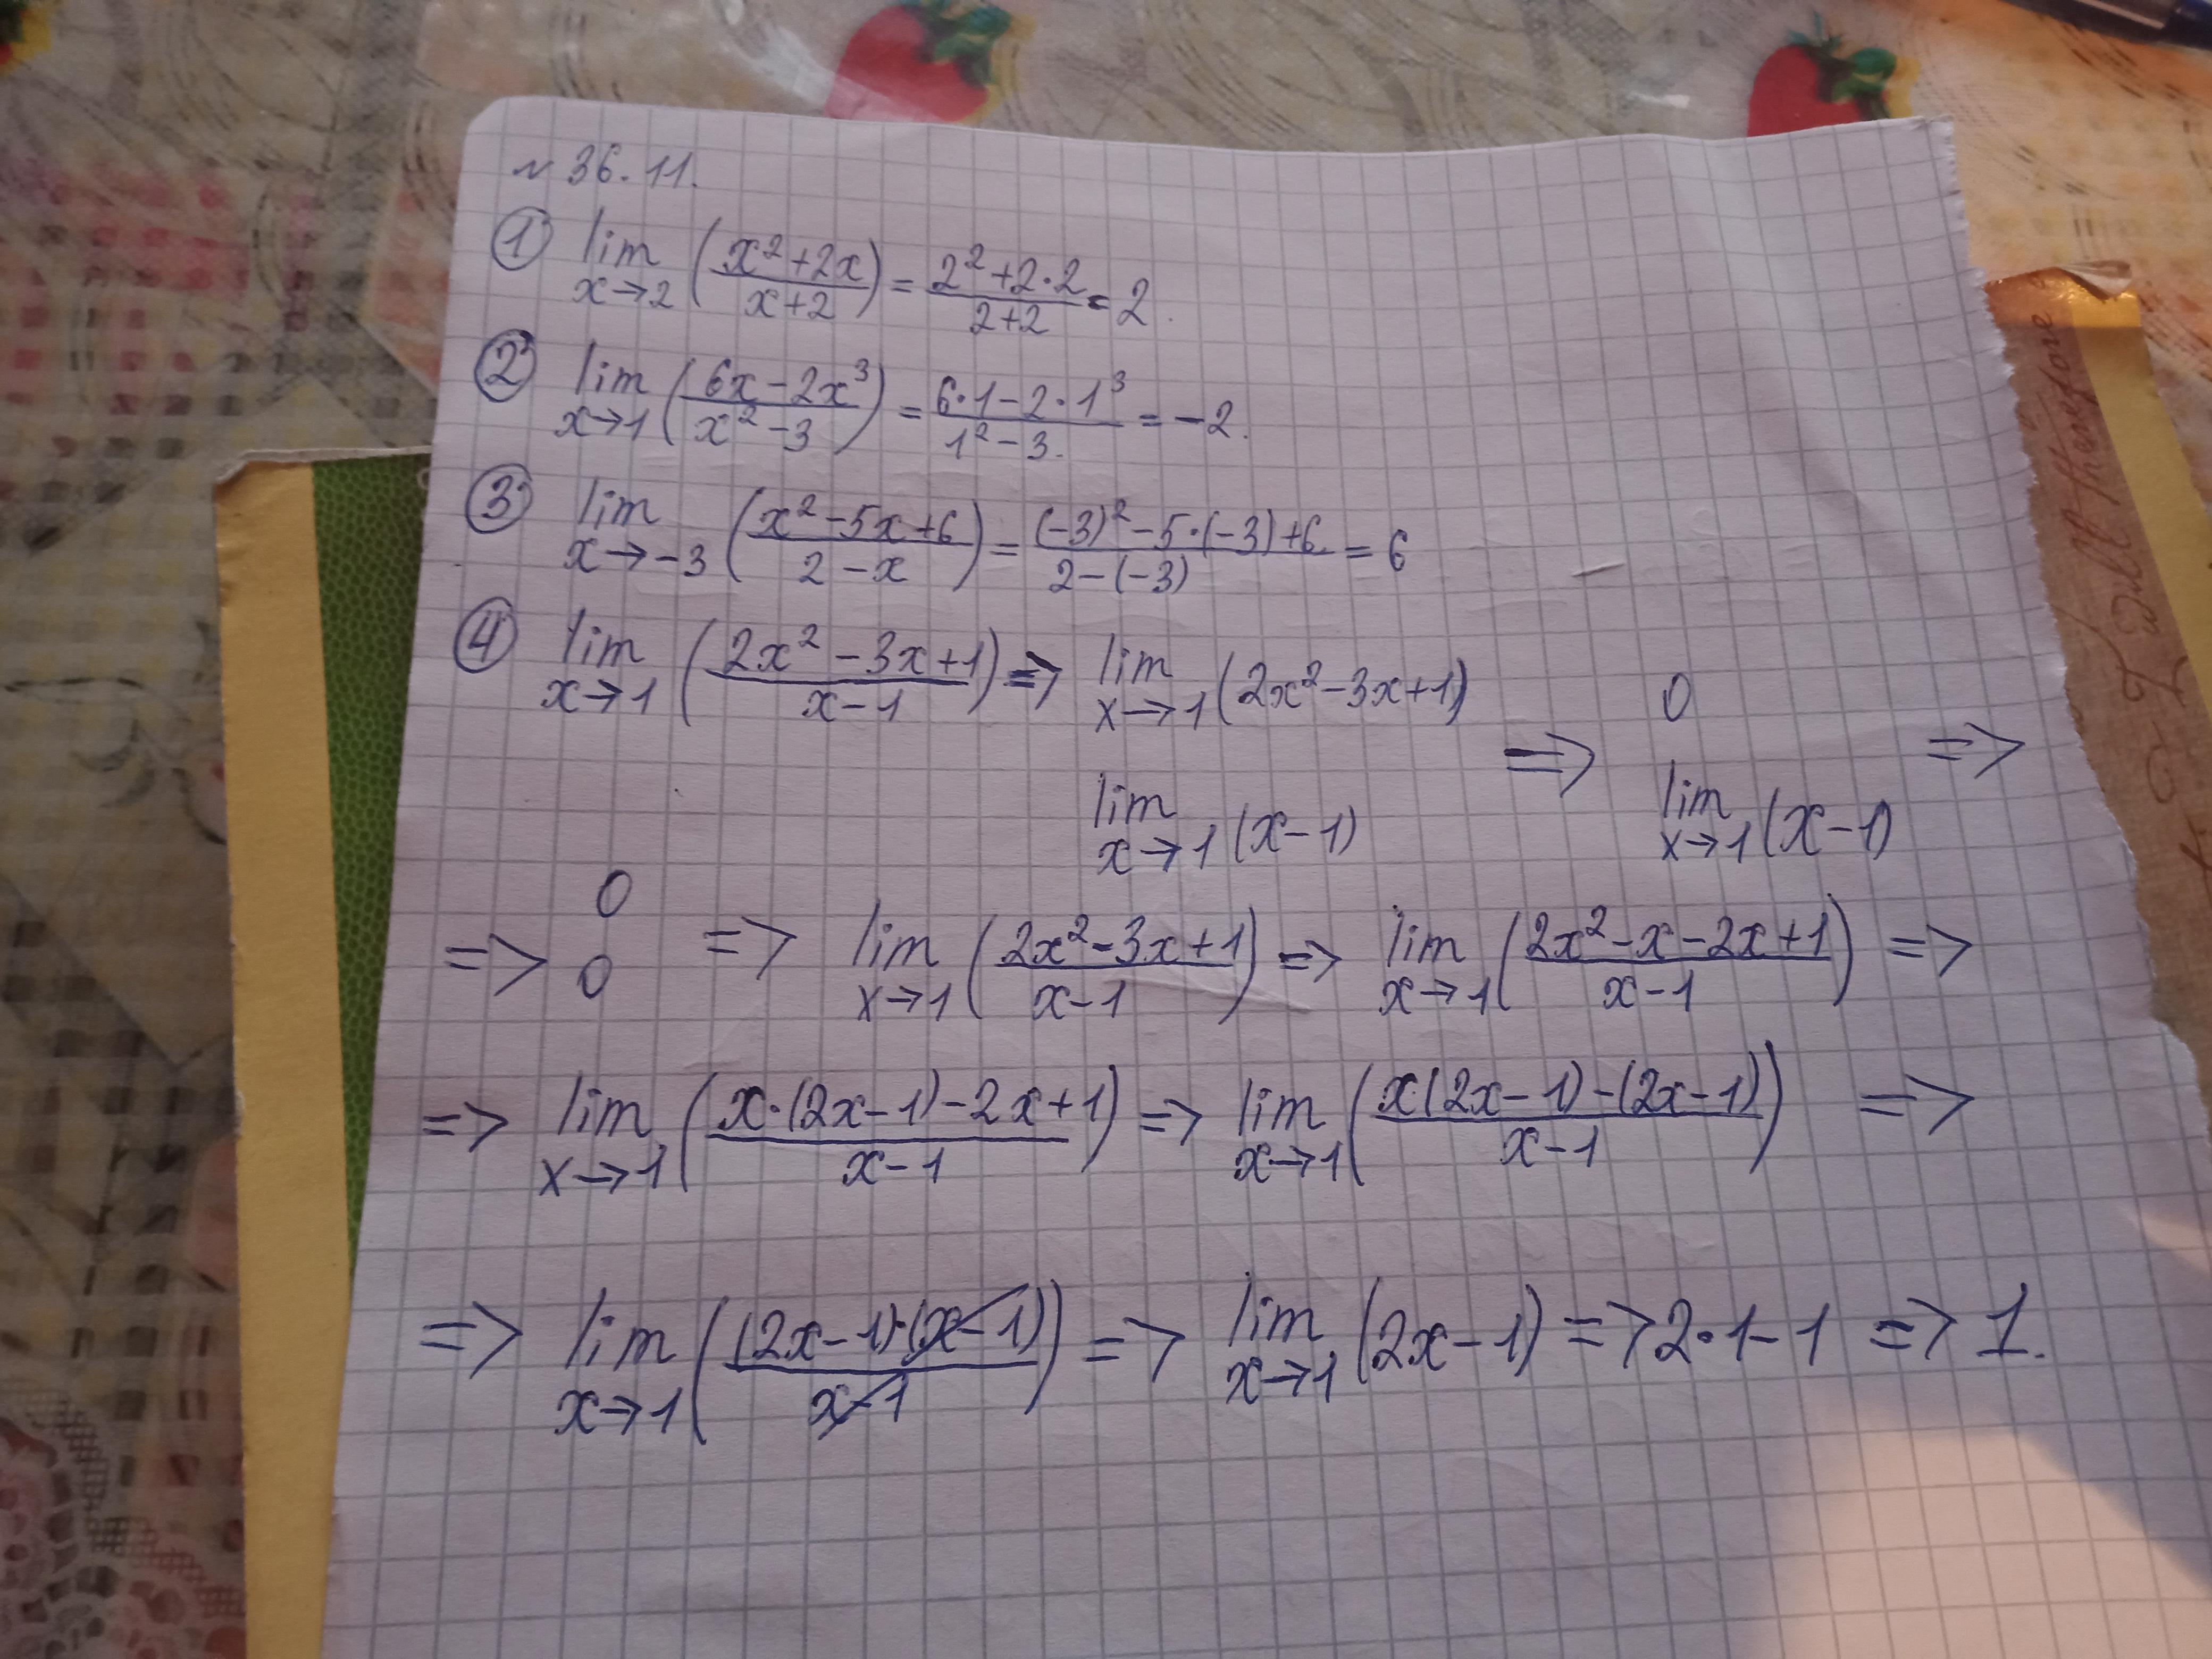 № 36.11.
① lim x→2 ((x²+2x)/(x+2)) = (2²+2·2)/(2+2) = 2.
② lim x→1 ((6x−2x³)/(x²−3)) = (6·1−2·1³)/(1²−3.) = −2.
③ lim x→−3 ((x²−5x+6)/(2−x)) = ((−3)²−5·(−3)+6.)/(2−(−3)) = 6
④ lim x→1 ((2x²−3x+1)/(x−1)) => lim x→1 (2x²−3x+1) lim x→1 (x−1) => 0 lim x→1 (x−1) =>
=> 0 0 => lim x→1 ((2x²−3x+1)/(x−1)) => lim x→1 ((2x²−x−2x+1)/(x−1)) =>
=> lim x→1 ((x·(2x−1)−2x+1)/(x−1)) => lim x→1 ((x(2x−1)−(2x−1))/(x−1)) =>
=> lim x→1 (((2x−1)·(x−1))/(x−1)) => lim x→1 (2x−1) => 2·1−1 => 1.
will therefore